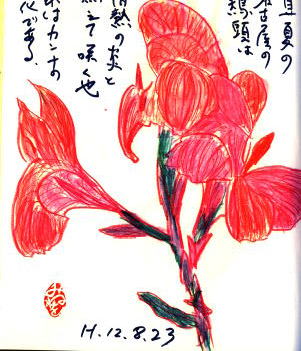 真夏の
名古屋の
鶏頭は
情熱の炎と
燃えて咲く也
花はカンナの
花である
H.12.8.23